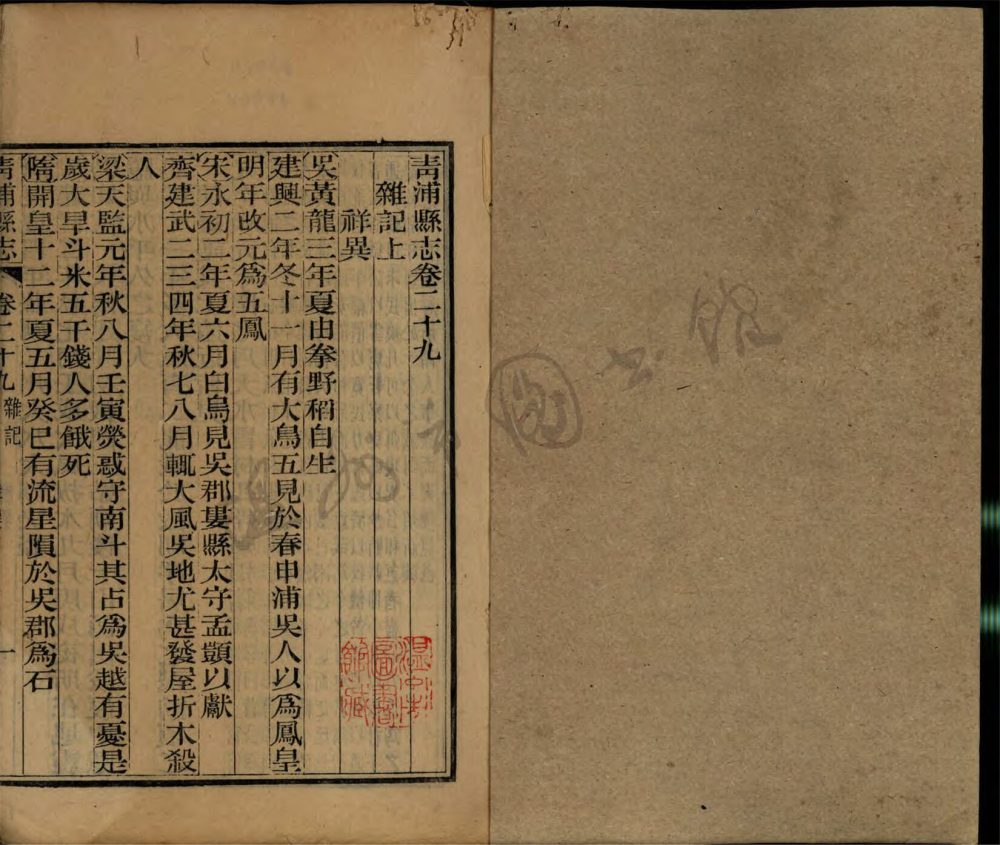 青浦縣志卷二十九
雜記上
祥異
吳黃龍三年夏由拳野稻自生
建興二年冬十一月有大鳥五見於春申浦吳人以爲鳳皇
明年改元爲五鳳
宋永初二年夏六月白烏見吳郡婁縣太守孟顗以獻
齊建武二三四年秋七八月輒大風吳地尤甚發屋折木殺
人
梁天監元年秋八月壬寅熒惑守南斗其占爲吳越有憂是
歲大旱斗米五千錢人多餓死
隋開皇十二年夏五月癸巳有流星隕於吳郡爲石
青浦縣志 卷二十九 雜記 一
圖書館藏
圖書館